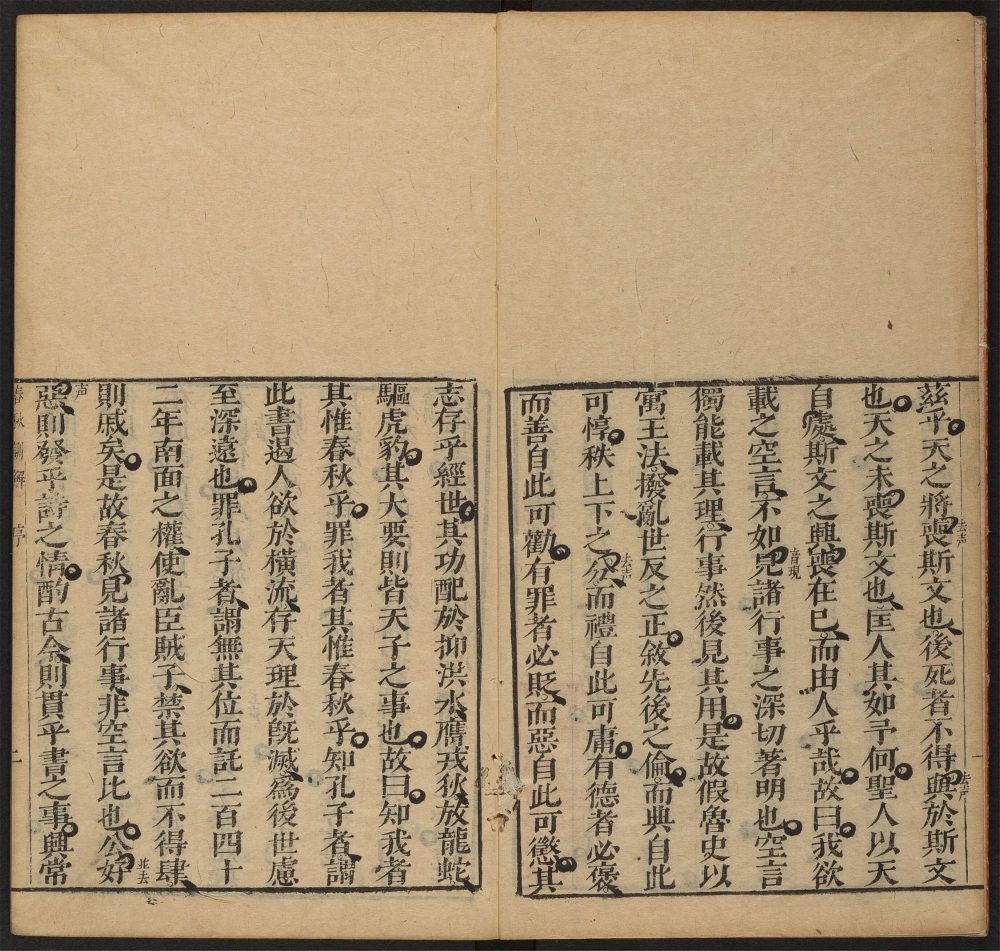 茲乎天之將喪去声斯文也後死者不得與去声於斯文
也天之未喪斯文也匡人其如予何聖人以天
自處斯文之興喪在已而由人乎哉故曰我欲
載之空言不如見音現諸行事之深切著明也空言
獨能載其理行事然後見其用是故假魯史以
寓王法撥亂世反之正敘先後之倫而典自此
可惇秩上下之分去声而禮自此可庸有德者必褒
而善自此可勸有罪者必貶而惡自此可懲其
志存乎經世其功配於抑洪水膺戎狄放龍蛇
驅虎豹其大要則皆天子之事也故曰知我者
其惟春秋乎罪我者其惟春秋乎知孔子者謂
此書遏人欲於橫流存天理於旣滅爲後世慮
至深遠也罪孔子者謂無其位而託二百四十
二年南面之權使亂臣賊子禁其欲而不得肆
則戚矣是故春秋見諸行事非空言比也公好並去
声惡則發乎詩之情酌古今則貫乎書之事興常
春秋 解 序 二